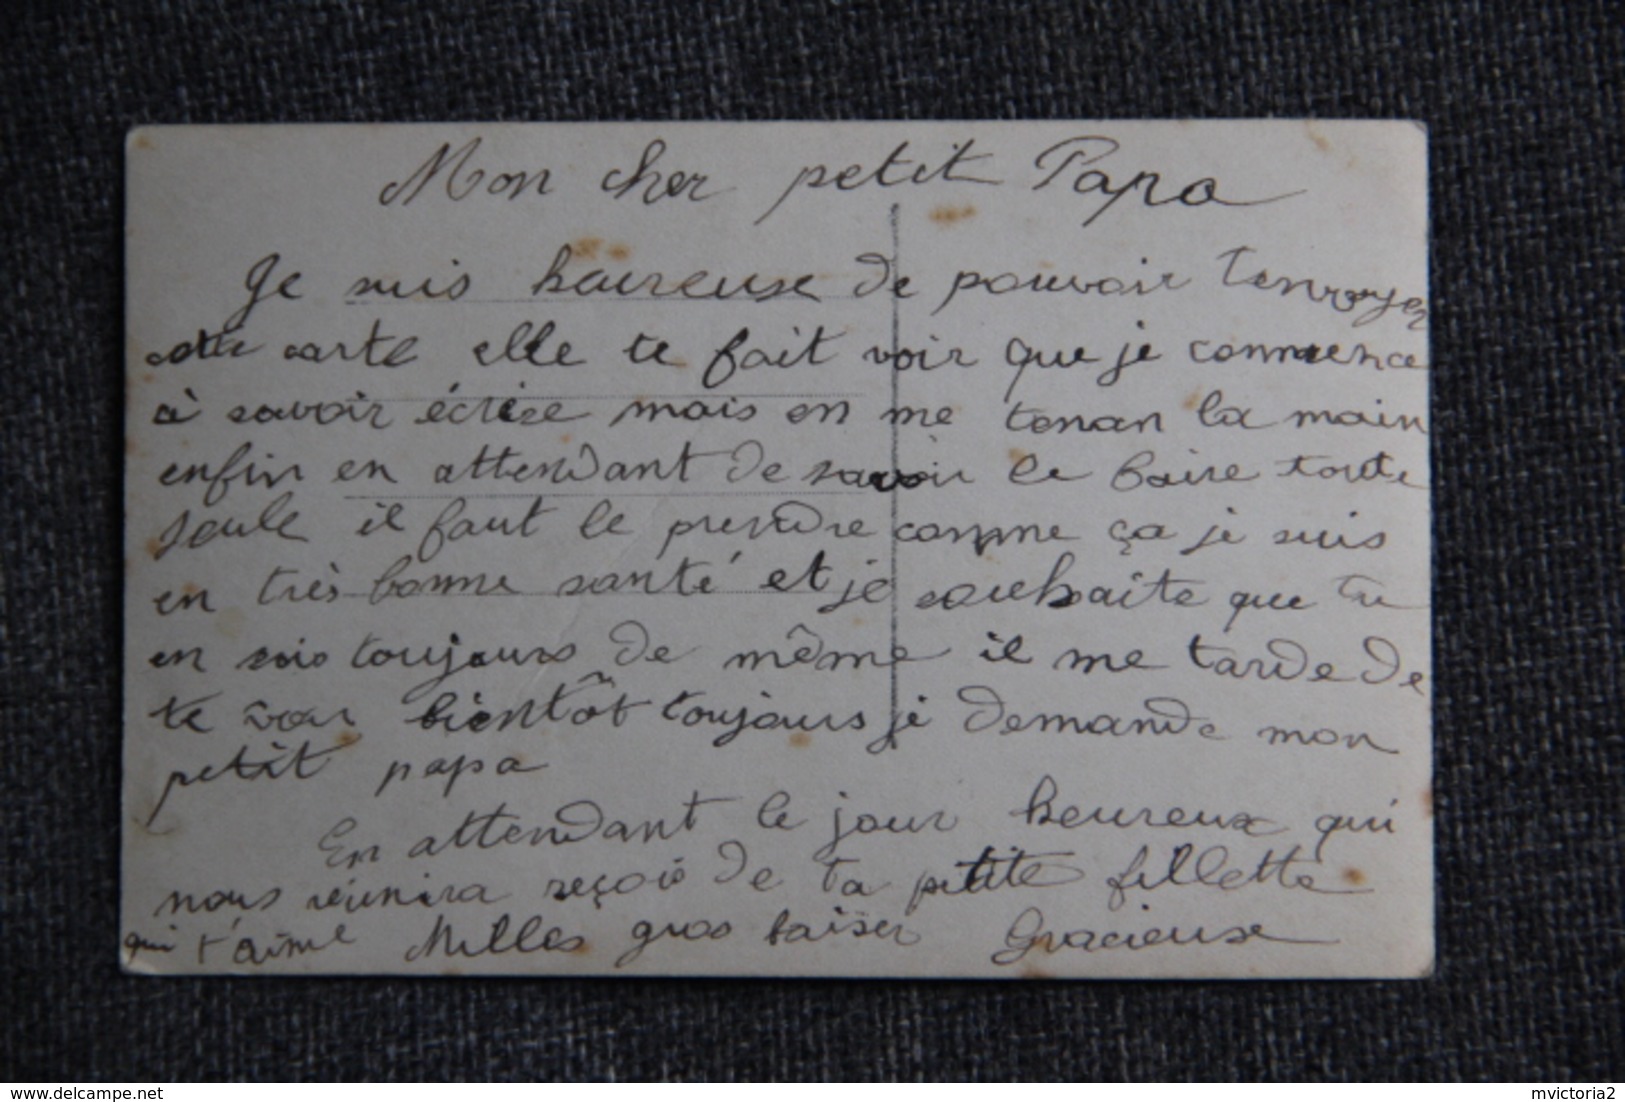 Mon cher petit Papa
Je suis haureuse de pouvoir t'envoyer
cette carte elle te fait voir que je commence
à savoir écrire mais en me tenan la main
enfin en attendant de savoir le baire toute
seule il faut le prendre comme ça je suis
en très bonne santé et je souhaite que tu
en sois toujours de même il me tarde de
te voir bientôt toujours je demande mon
petit papa
En attendant le jour heureux qui
nous réunira reçois de ta petite fillette
qui t'aime Milles gros baiser Gracieuse
delcampe.net
mvictoria2